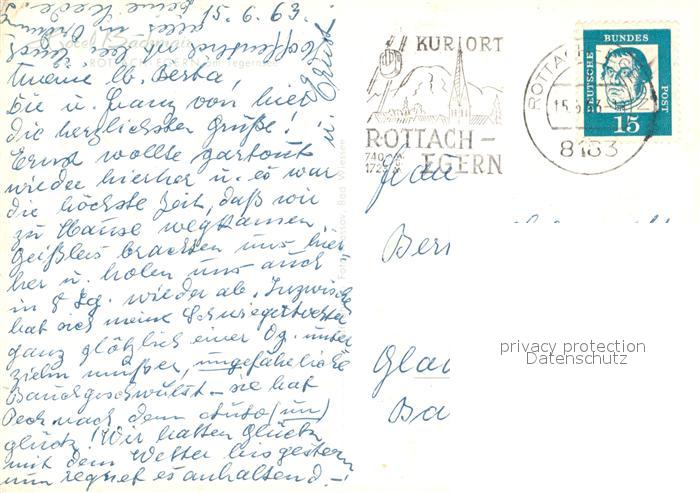 15. 6. 63.
Meine lb. Berta,
Die u. Franz von hier
die herzlichsten Grüße!
Ernst wollte partout
wieder hierher u. es war
die höchste Zeit, daß wir
zu Hause wegkamen.
Geißlers brachten uns hier,
her u. holen uns auch
in 8 Tg. wieder ab. Inzwischen
hat sich meine Schwiegertochter
ganz plötzlich einer Op. unter
ziehn müssen, ungefährliche
Bauchgeschwulst – sie hat
Pech nach dem Auto (un)
glück! Wir hatten Glück
mit dem Wetter bis gestern
nun regnet es anhaltend. –
u. Ernst
ROTTACH-EGERN am Tegernsee
Bad Wiessee
KURORT
ROTTACH-
EGERN
740
ROTTACH
15.6.63
8183
DEUTSCHE
BUNDES
POST
15
Frau
Ber
Gla
Ba
privacy protection
Datenschutz